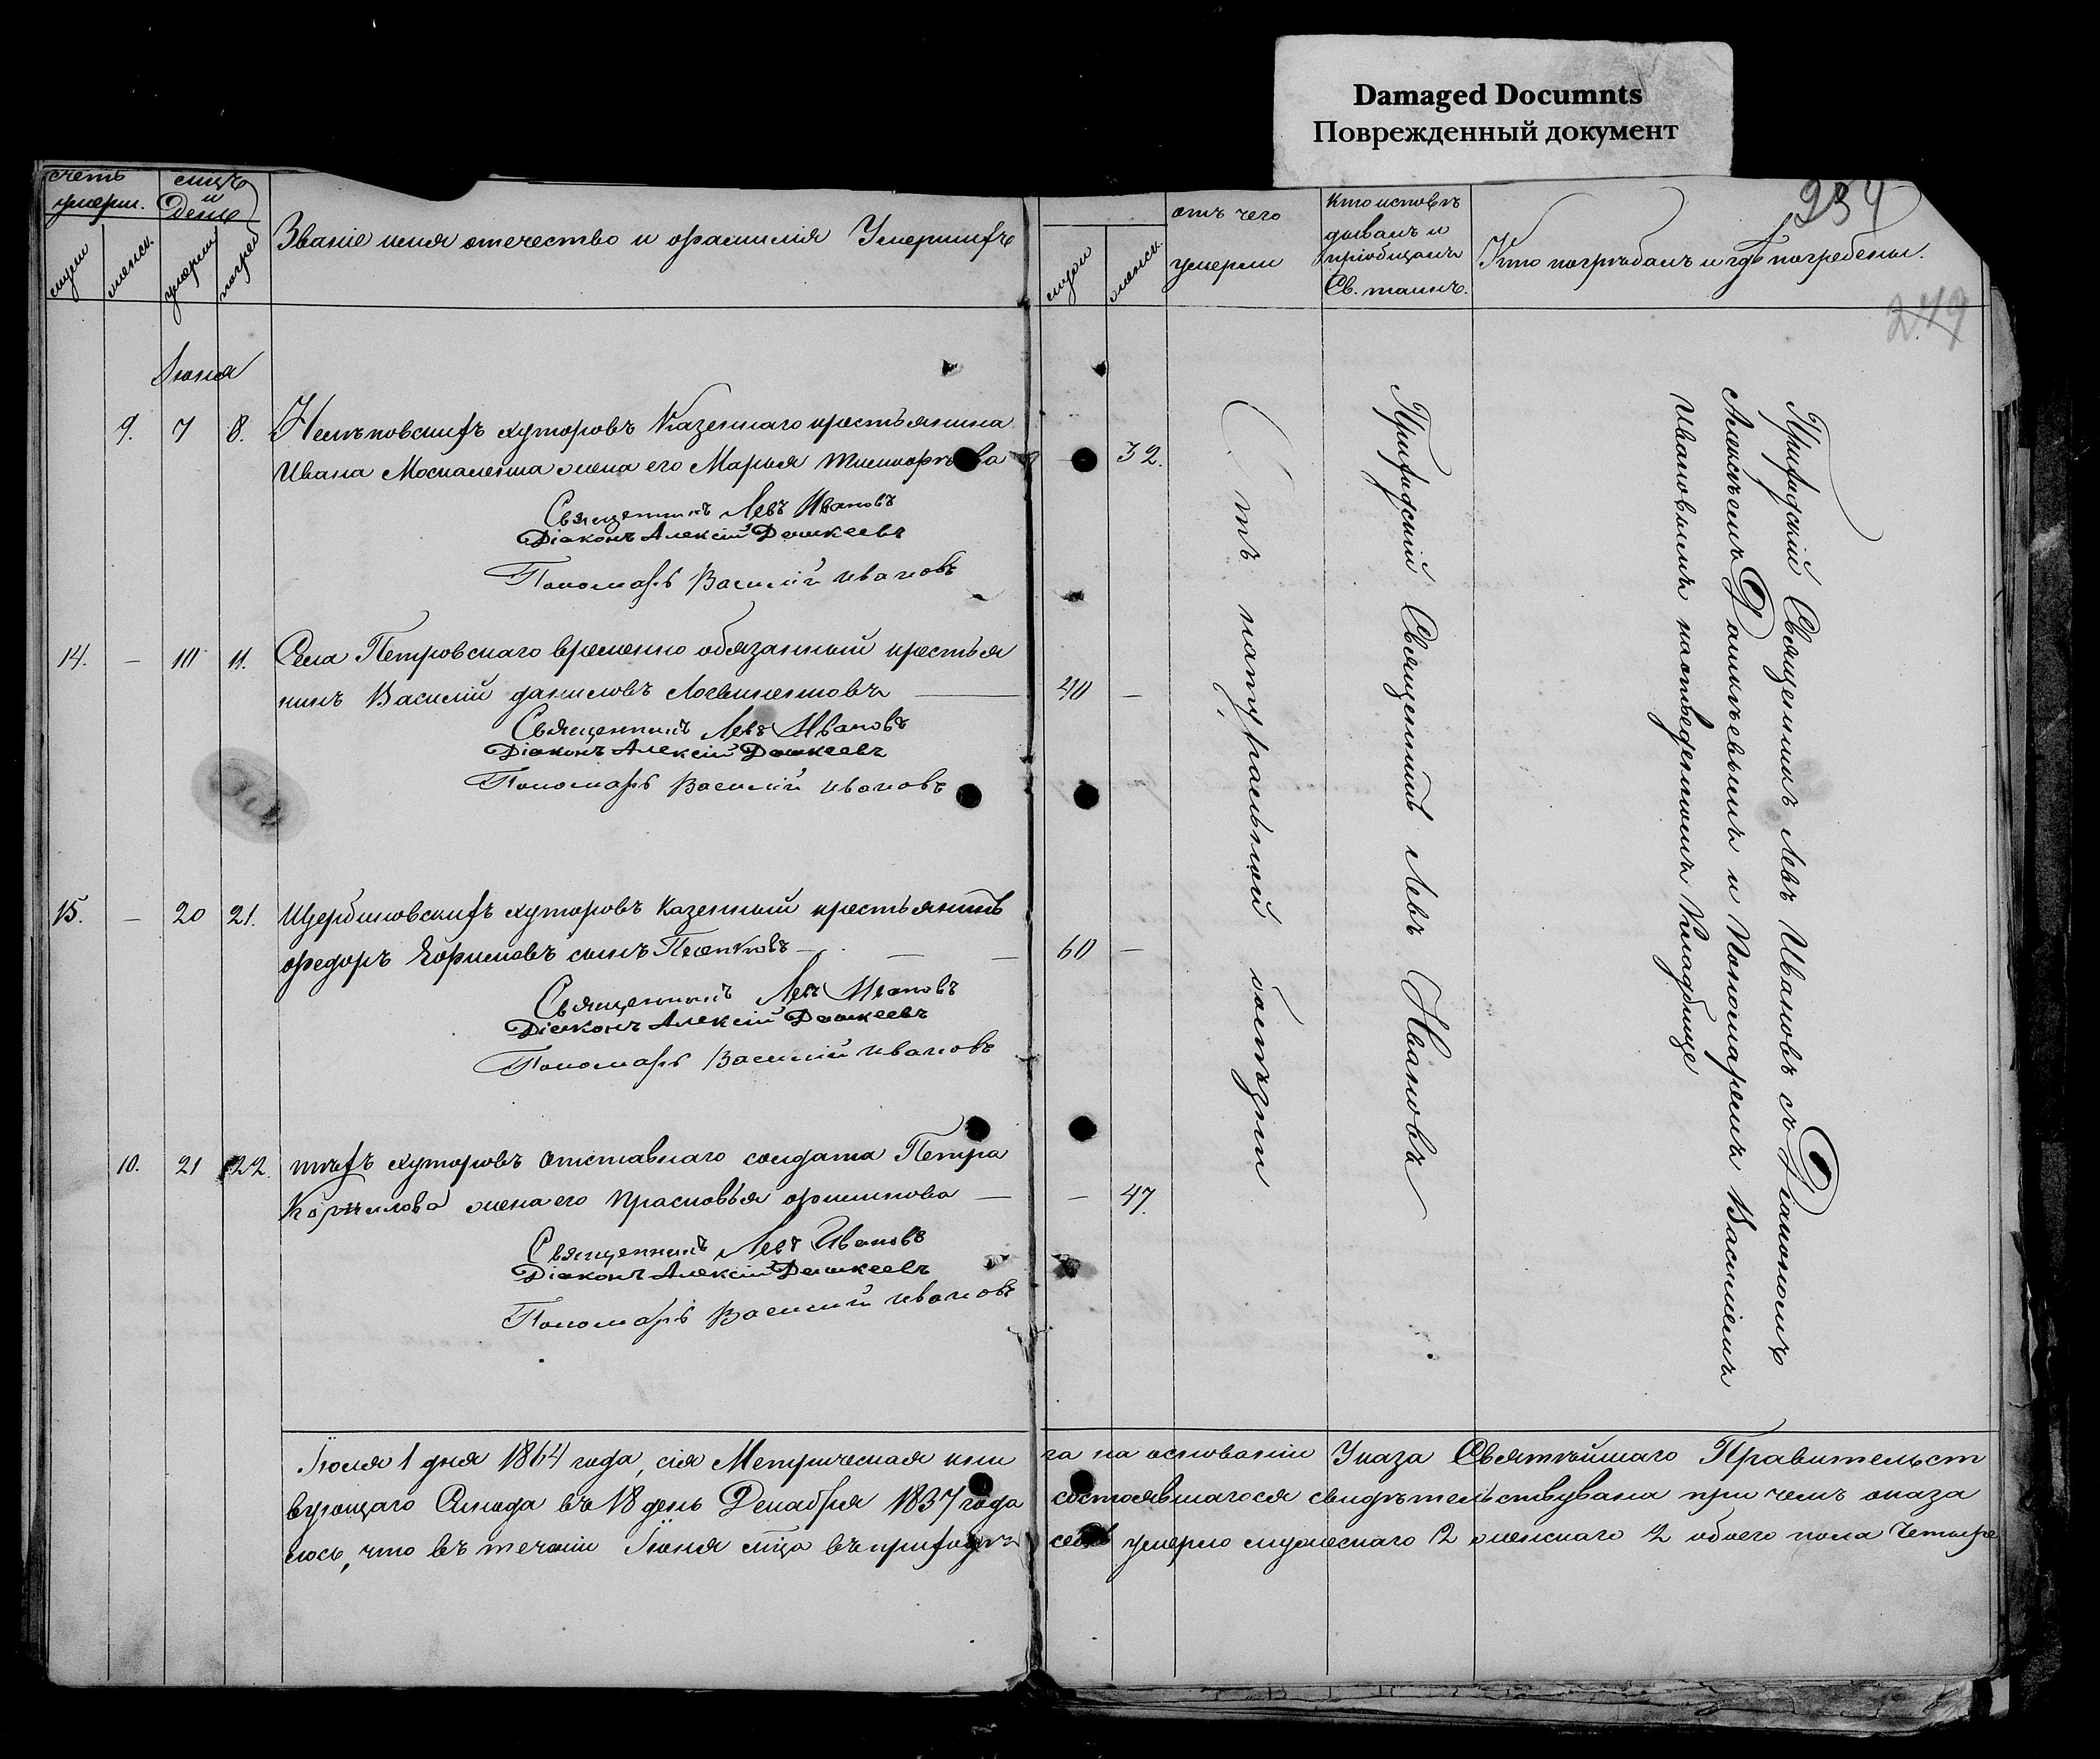 Damaged Documnts
Поврежденный документ
234
249
счетъ умерш.
мѣсцъ и день
мужи
женск.
умерти
погреб
Званіе имя отечество и фамилія Умершихъ
мужи
женск.
отъ чего умерли
Кто исповѣдывалъ и пріобщалъ Св. таинъ.
Кто погрѣбалъ и гдѣ погребены.
Іюня
9. 7 8. хуторовъ Казеннаго крестьянина
Ивана Москаленка жена его Марья 32.
Священникъ Левъ Ивановъ
Діаконъ Алексій Дашкеевъ
Пономарь Василій Ивановъ
14. – 10 11. Села Петровскаго временно обязанный крестья
нинъ Василій Даниловъ Логвиненковъ — 40 —
Священникъ Левъ Ивановъ
Діаконъ Алексій Дашкеевъ
Пономарь Василій Ивановъ
15. – 20 21. Щербиновскихъ хуторовъ Казенный крестьянинъ
Федоръ Ефимовъ сынъ — 60 —
Священникъ Левъ Ивановъ
Діаконъ Алексій Дашкеевъ
Пономарь Василій Ивановъ
10. 21 22. тѣхъ хуторовъ отставнаго солдата Петра
Корнилова жена его Прасковья — – 47.
Священникъ Левъ Ивановъ
Діаконъ Алексій Дашкеевъ
Пономарь Василій Ивановъ
Отъ натуральной болѣзни
Приходскій Священникъ Левъ Ивановъ
Приходскій Священникъ Левъ Ивановъ съ Діакономъ
Алексѣемъ и Пономаремъ Василіемъ
Ивановымъ на отведенномъ Кладбище
Іюля 1 дня 1864 года, сія Метрическая кни га на основаніи Указа Святѣйшаго Правительст
вующаго Синода въ 18 день Декабря 1837 года состоявшагося свидѣтельствувана при чемъ оказа
лось, что въ теченіи Іюня мѣца въ приходѣ умерло мужескаго 2 женскаго 2 обоего пола четыре